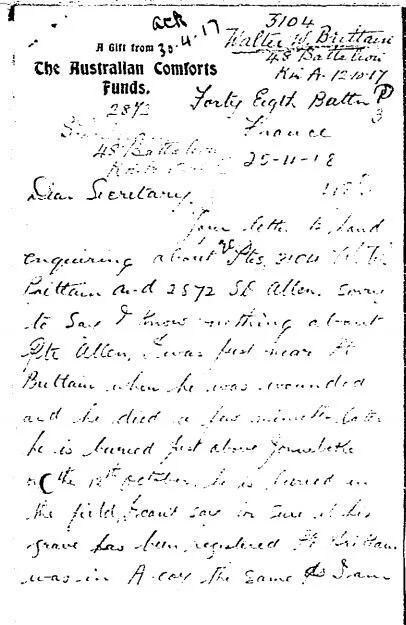 ack
30-4-17
3104
Walter W. Brittain
48 Battalion
K in A. 12-10-17
A Gift from
The Australian Comforts
Funds.
2872
48 Battalion
Forty Eigh Battn
France
25-11-18
Dear Secretary,
Your letter to hand
enquiring about Ptes 3104 W. W.
Brittain and 2872 Allen. sorry
to say I know nothing about
Pte Allen, I was just near Pt
Brittain when he was wounded
and he died a few minutes later
he is buried just above
on the 12th October, he is buried in
the field, I cant say for sure if his
grave has been registered Pt Brittain
was in A coy the same as I am